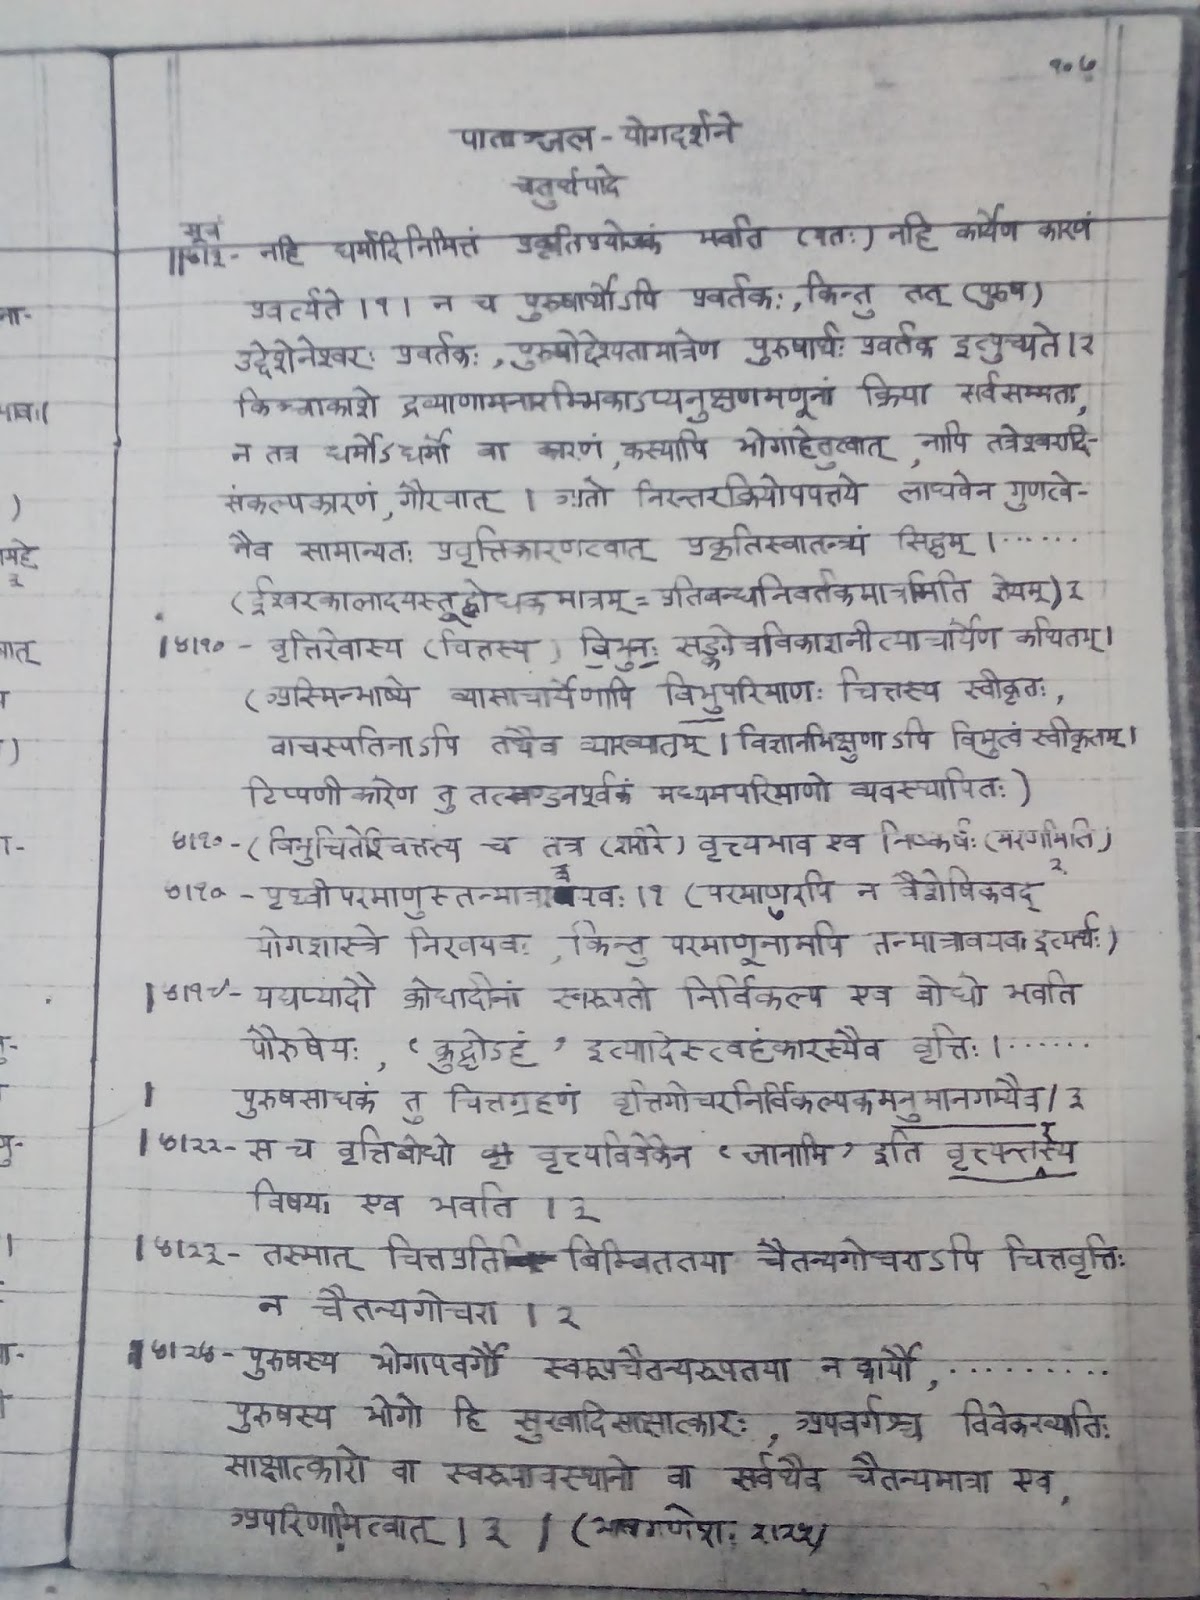 १०७
पातञ्जल-योगदर्शने
चतुर्थपादे
सूत्रं
||४।३- नहि धर्मादिनिमित्तं प्रकृतिप्रयोजकं भवति (यतः) नहि कार्येण कारणं
प्रवर्त्यते ।१। न च पुरुषार्थोऽपि प्रवर्तकः, किन्तु तत् (पुरुष)
उद्देशेनेश्वरः प्रवर्तकः, पुरुषोद्देश्यतामात्रेण पुरुषार्थः प्रवर्तक इत्युच्यते।२
किञ्चाकाशे द्रव्याणामनारम्भिकाऽप्यनुक्षणमणूनां क्रिया सर्वसम्मता,
न तत्र धर्मोऽधर्मो वा कारणं, कस्यापि भोगाहेतुत्वात्, नापि तत्रेश्वरादि-
संकल्पकारणं, गौरवात् । अतो निरन्तरक्रियोपपत्तये लाघवेन गुणत्वे-
नैव सामान्यतः प्रवृत्तिकारणत्वात् प्रकृतिस्वातन्त्र्यं सिद्धम् ।......
(ईश्वरकालादयस्तूद्बोधकमात्रम् = प्रतिबन्धनिवर्तकमात्रमिति ज्ञेयम्)३
|४।१०- वृत्तिरेवास्य (चित्तस्य) विभुनः सङ्कोचविकाशनीत्याचार्येण कथितम्।
(अस्मिन्भाष्ये व्यासाचार्येणापि विभुपरिमाणः चित्तस्य स्वीकृतः,
वाचस्पतिनाऽपि तथैव व्याख्यातम् । विज्ञानभिक्षुणाऽपि विभुत्वं स्वीकृतम्।
टिप्पणीकारेण तु तत्खण्डनपूर्वकं मध्यमपरिमाणो व्यवस्थापितः)
४।१०-(विभुचितेश्चित्तस्य च तत्र (शरीरे) वृत्त्यभाव एव निष्कर्षः (मरणमिति)
४।१०- पृथ्वीपरमाणुस्तन्मात्रा वयवः ।१ (परमाणुरपि न वैशेषिकवद्
योगशास्त्रे निरवयवः, किन्तु परमाणूनामपि तन्मात्रावयव इत्यर्थः)
|४।१९- यद्यप्यादौ क्रोधादीनां स्वरूपतो निर्विकल्प एव बोधो भवति
पौरुषेयः, 'क्रुद्धोऽहं' इत्यादेस्त्वहंकारस्यैव वृत्तिः।......
| पुरुषसाधकं तु चित्तग्रहणं वृत्तिगोचरनिर्विकल्पकमनुमानगम्यैव।३
|४।२२- स च वृत्तिबोधो वृत्त्यविवेकेन 'जानामि' इति वृत्त्यन्तरस्य
विषय एव भवति ।३
|४।२३- तस्मात् चित्तप्रति बिम्बिततया चैतन्यगोचराऽपि चित्तवृत्तिः
न चैतन्यगोचरा ।२
|४।२४- पुरुषस्य भोगापवर्गौ स्वरूपचैतन्यरूपतया न कार्यौ,..........
पुरुषस्य भोगो हि सुखादिसाक्षात्कारः, अपवर्गश्च विवेकख्यातिः
साक्षात्कारो वा स्वरूपावस्थानो वा सर्वथैव चैतन्यमात्रा एव,
अपरिणामित्वात् ।३ | (भावागणेशः